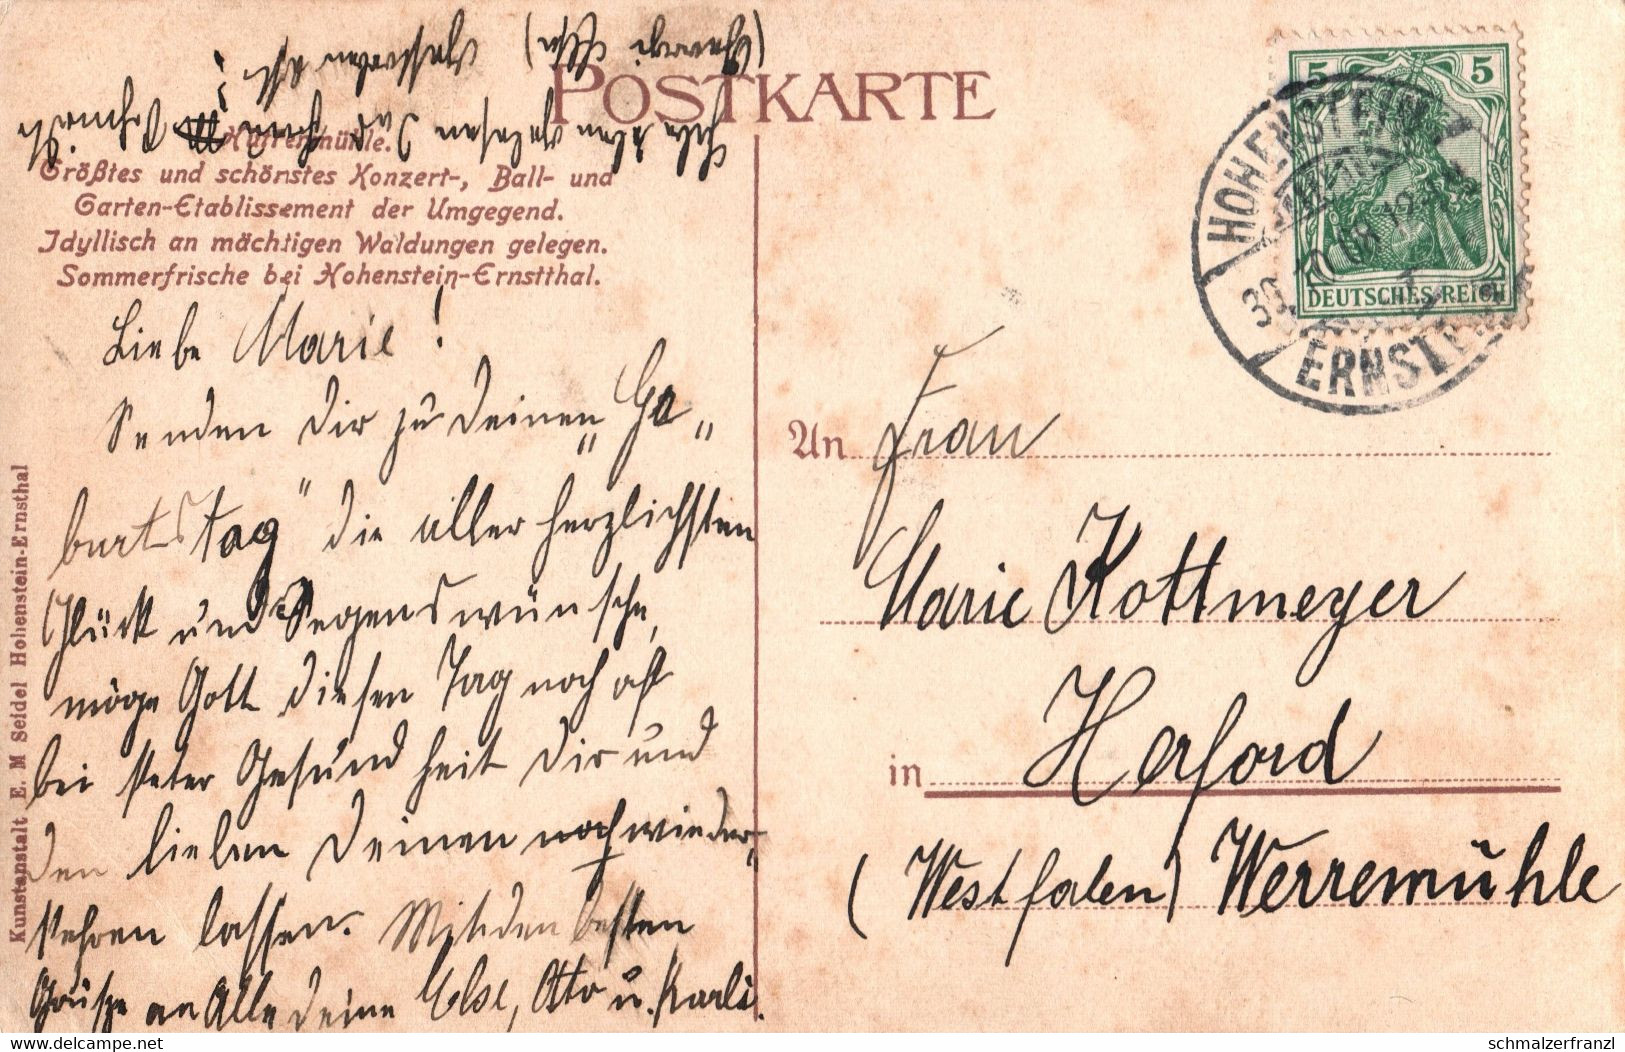 POSTKARTE
Hüttenmühle.
Größtes und schönstes Konzert-, Ball- und
Garten-Etablissement der Umgegend.
Idyllisch an mächtigen Waldungen gelegen.
Sommerfrische bei Hohenstein-Ernstthal.
Liebe Marie!
Senden Dir zu Deinen „Ge„
burtstag" die aller herzlichsten
Glück und Segenswünsche,
möge Gott diesen Tag noch oft
bei steter Gesundheit Dir und
den lieben Deinen noch wieder-
kehren lassen. Mit den besten
Grüßen an Alle Deine Else, Otto u. Karli.
Habe eben gelesen das Frau
gestorben ist!
Kunstanstalt E. M Seidel Hohenstein-Ernsthal
5 5
DEUTSCHES REICH
HOHENSTEIN-
ERNSTTHAL
An Frau
Marie Kottmeyer
in Herford
(Westfalen) Werremühle
www.delcampe.net
schmalzerfranzl